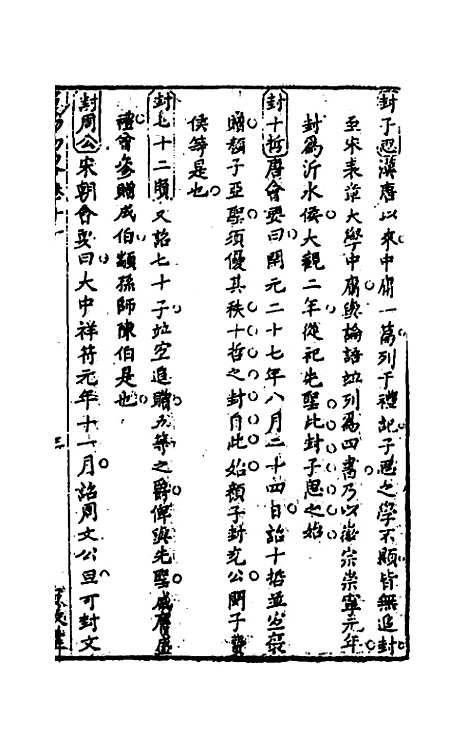 封子思漢唐以來中庸一篇列于禮記子思之學不顯皆無追封
至宋表章大學中庸與論語竝列爲四書乃以徽宗崇寧元年
封爲沂水侯大觀二年從祀先聖此封子思之始
封十哲唐會要曰開元二十七年八月二十四日詔十哲並宜襃
贈顏子亞聖須優其秩十哲之封自此始顏子封兗公閔子費
侯等是也
封七十二賢又詔七十子竝宜追贈五等之爵俾與先聖咸膺盛
禮曾參贈成伯顓孫師陳伯是也
封周公宋朝會要曰大中祥符元年十一月詔周文公旦可封文
卷十一 三